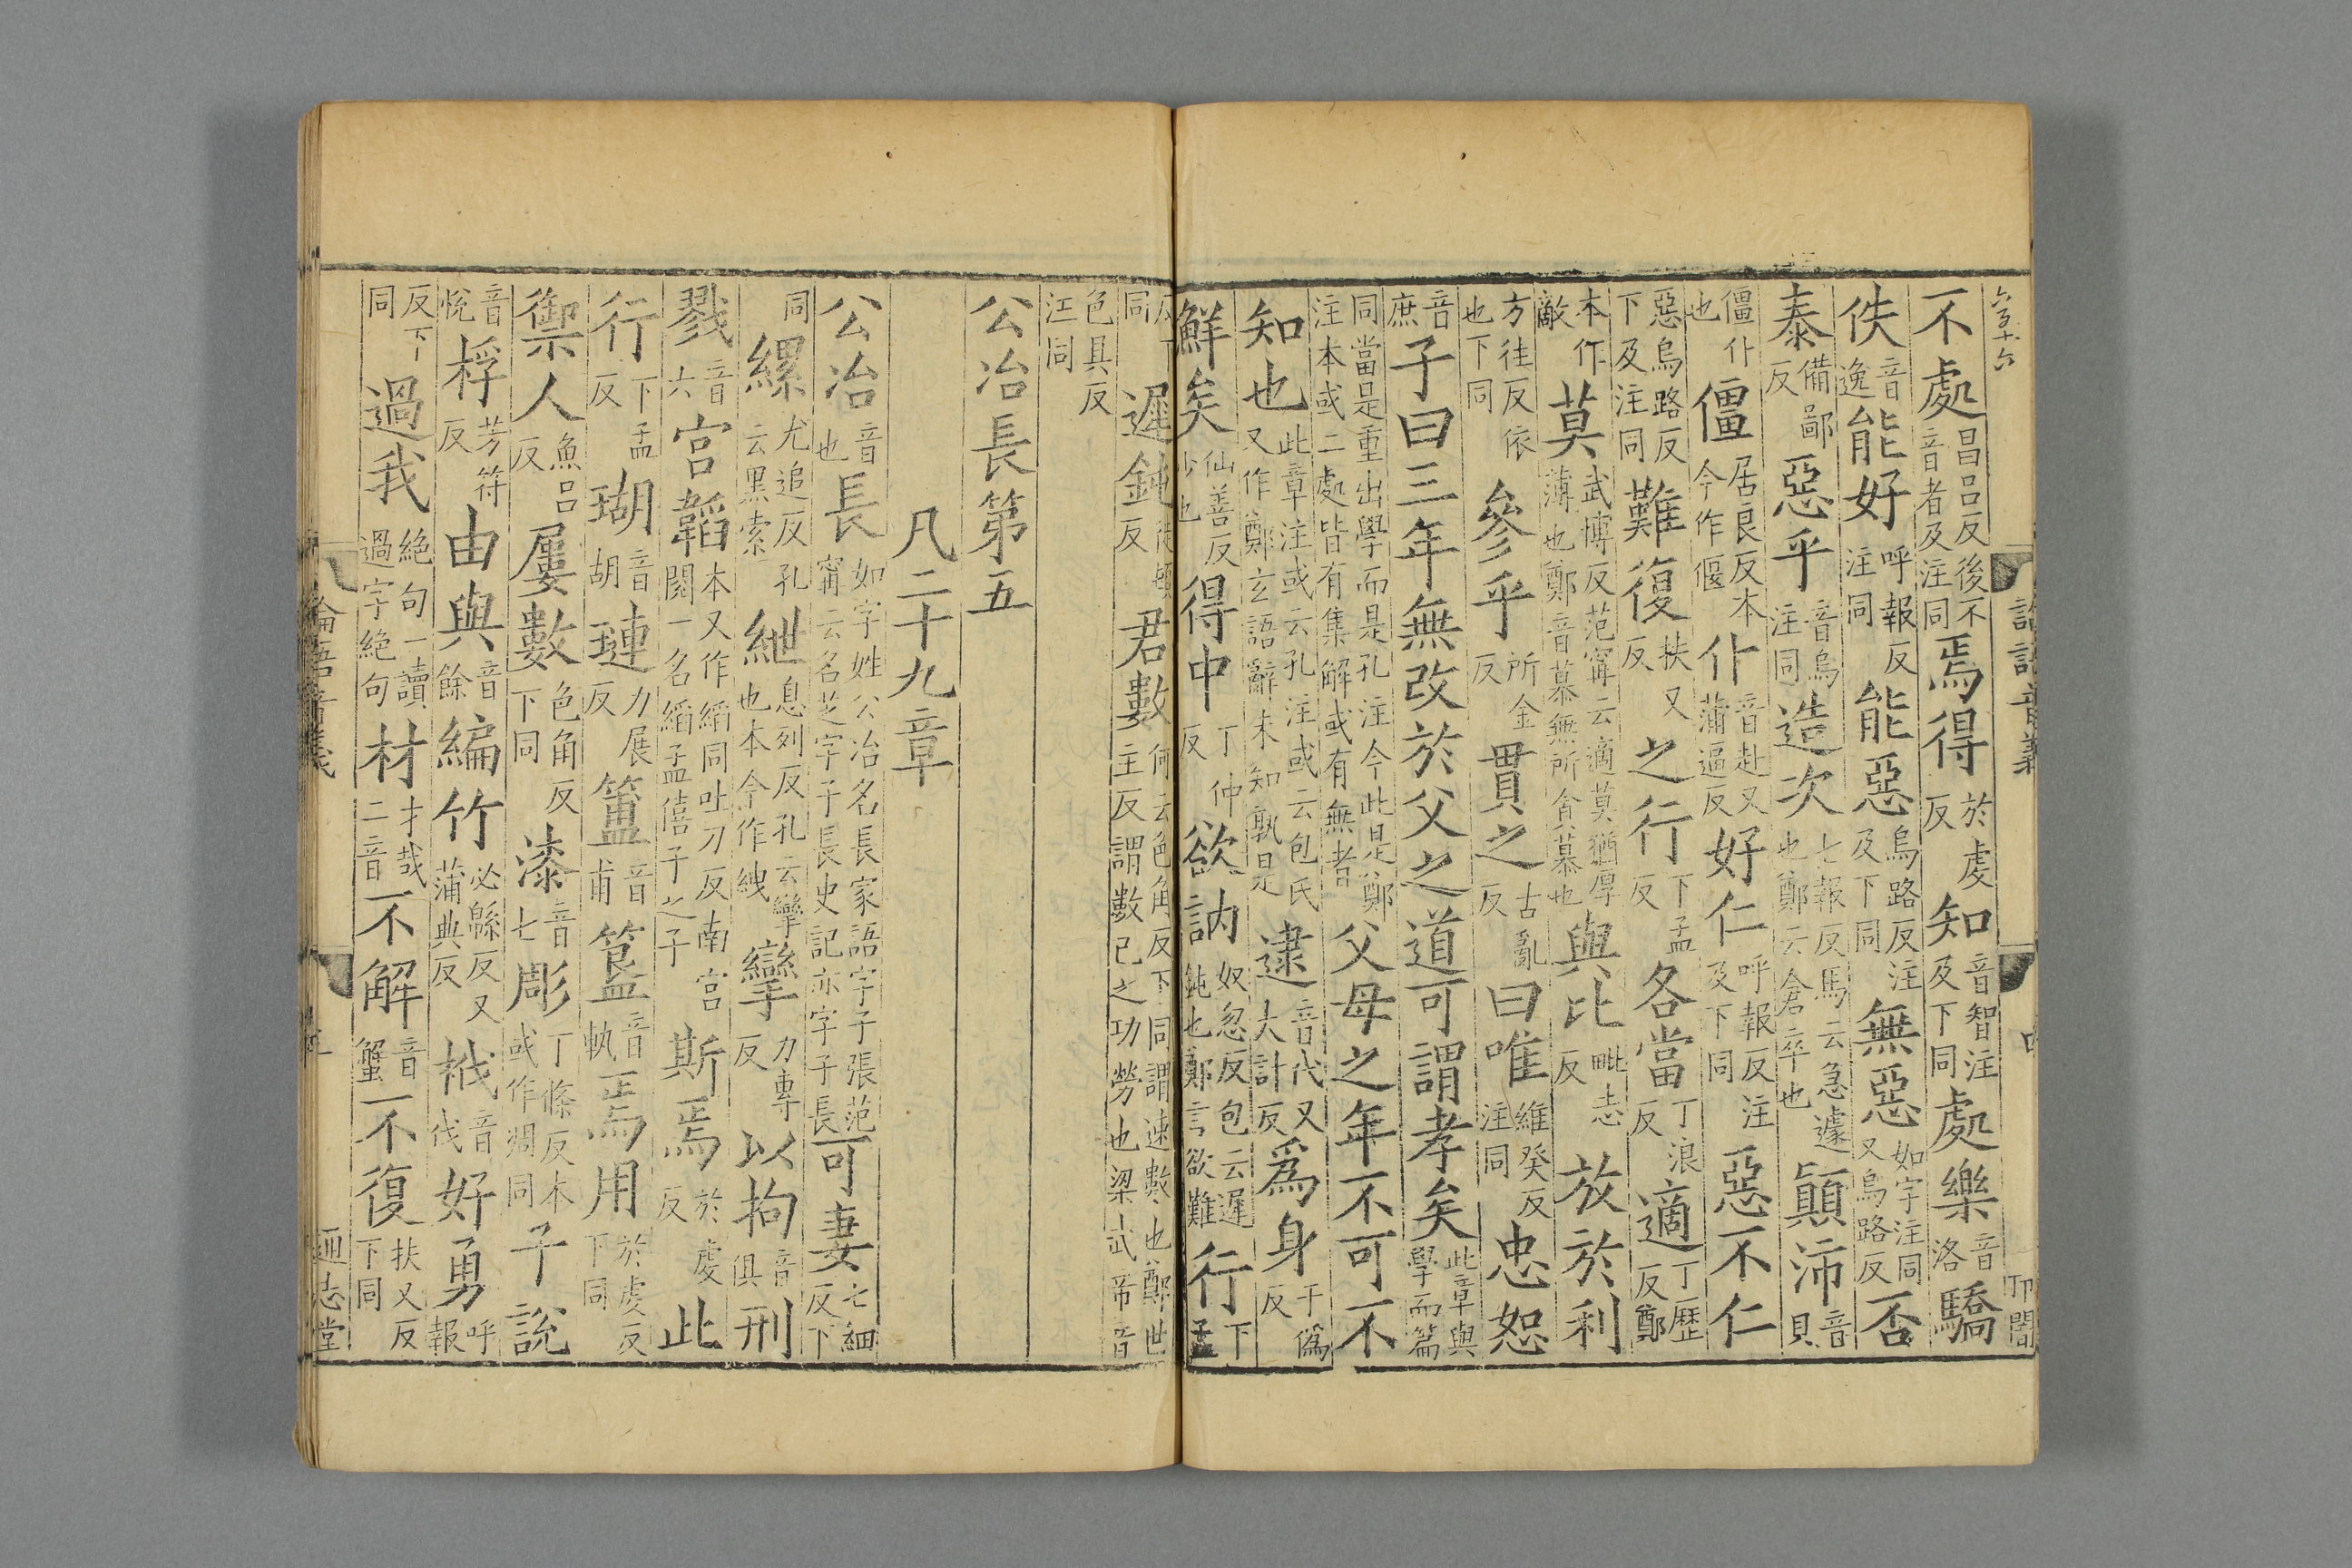 不處昌呂反後不音者及注同焉得於虔反知音智注及下同處樂音洛驕
佚音逸能好呼報反注同能惡烏路反注及下同無惡如字注同又烏路反否
泰備鄙反惡乎音烏注同造次七報反馬云急遽也鄭云倉卒也顚沛音貝
僵仆也僵居良反本今作偃仆音赴又蒲逼反好仁呼報反注及下同惡不仁
惡烏路反下及注同難復扶又反之行下孟反各當丁浪反適丁歷反鄭
本作敵莫武博反范甯云適莫猶厚薄也鄭音慕無所貪慕也與比毗志反放於利
方往反依也下同參乎所金反貫之古亂反曰唯維癸反注同忠恕
音庶子曰三年無改於父之道可謂孝矣此章與學而篇
同當是重出學而是孔注今此是鄭注本或二處皆有集解或有無者父母之年不可不
知也此章注或云孔注或云包氏又作鄭玄語辭未知孰是逮音代又大計反爲身于僞反
鮮矣仙善反少也得中丁仲反欲訥奴忽反包云遲鈍也鄭言欲難行下孟
反下同遲鈍徒頓反君數何云色角反下同謂速數也鄭世主反謂數己之功勞也梁武帝音
色具反注同
公冶長第五
凡二十九章
公冶音也長如字姓公冶名長家語字子張范甯云名芝字子長史記亦字子長可妻七細反下
同縲尤追反孔云黑索紲息列反孔云攣也本今作絏攣力專反以拘音俱刑
戮音六宮韜本又作縚同吐刀反南宮閱一名縚孟僖子之子斯焉於虔反此
行下孟反瑚音胡璉力展反簠音甫簋音軌焉用於虔反下同
禦人魚呂反屢數色角反下同漆音七彫丁條反本或作凋同子說
音悅桴芳符反由與音餘編竹必緜反又蒲典反栰音伐好勇呼報
反下同過我絕句一讀過字絕句材才哉二音不解音蟹不復扶又反下同
論語音義
通志堂